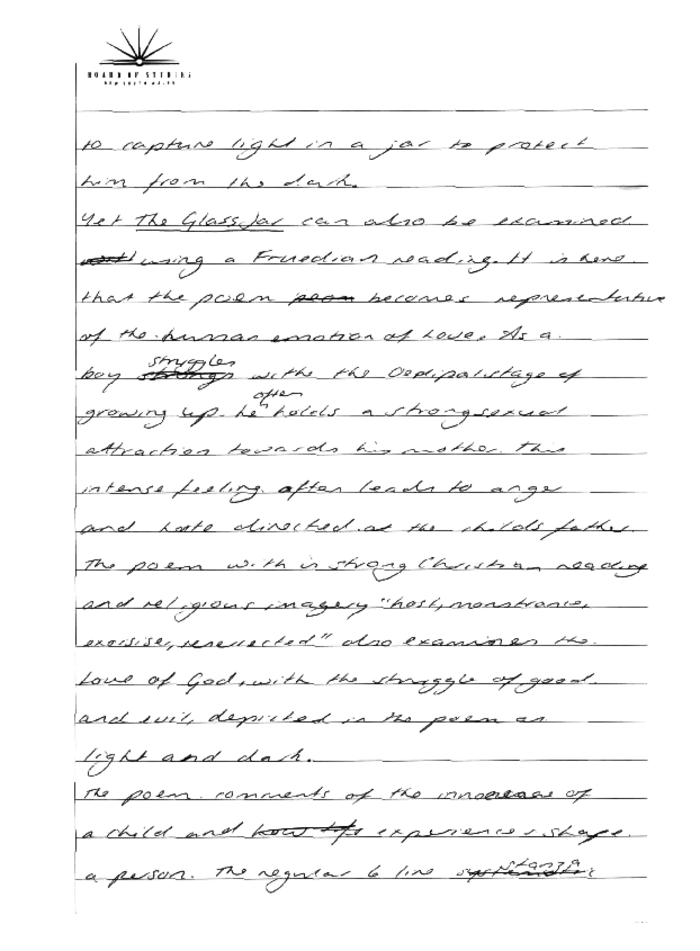 BOARD OF STUDIES
NEW SOUTH WALES
to capture light in a jar to protect
him from the dark.
Yet The Glass Jar can also be examined
using a Fruedian reading. It is here
that the poem becomes representative
of the human emotion of Love. As a
boy struggles withe the Oedipal stage of
growing up. he often holds a strong sexual
attraction towards his mother. This
intense feeling often leads to anger
and hate directed at the childs father.
The poem with is strong Christian reading
and religious imagery "host, monstrance,
exorsise, resserected" also examines the
Love of God, with the struggle of good
and evil, depicted in the poem as
light and dark.
The poem comments of the innocence of
a child and experiences shape
a person. The regular 6 line stanza